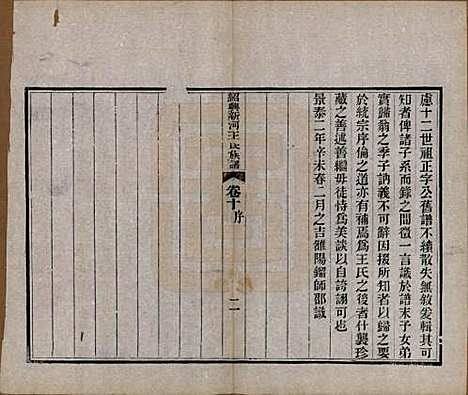 慮十二世祖正字公舊譜不續散失無敘爰輯其可
知者俾諸子系而錄之間徵一言識於譜末子女弟
實歸翁之季子訥義不可辭因援所知者以歸之要
於統宗序倫之道亦有補焉為王氏之後者什襲珍
藏之善述善繼毋徒恃為美談以自誇詡可也
景泰二年辛未春二月之吉雒陽鎦師邵識
紹興新河王氏族譜
卷十序
二